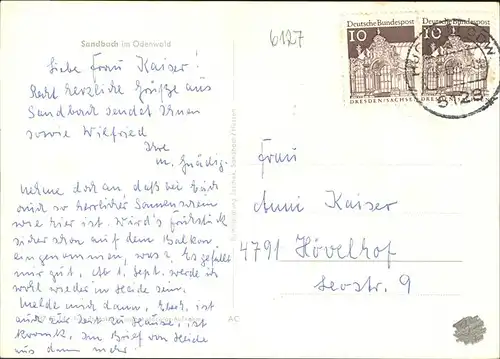 Sandbach im Odenwald
6127
Deutsche Bundespost
10
DRESDEN/SACHSEN
Deutsche Bundespost
10
DRESDEN/SACHSEN
Liebe Frau Kaiser!
Recht herzliche Grüße aus
Sandbach sendet Ihnen
sowie Wilfried
Ihre
M. Gnädig.
Nehme doch an daß bei Euch
auch so herrlicher Sonnenschein
wie hier ist. Wird's Frühstück
sicher schon auf dem Balkon
eingenommen, was? Es gefällt
mir gut, Ab 1. Sept. werde ich
wohl wieder in Heide sein.
Melde mich dann, ist
auch zur Zeit zu Hause, ist
krank, Im Brief von Heide
aus dann mehr.
Frau
Anni Kaiser
4791 Hövelhof
9